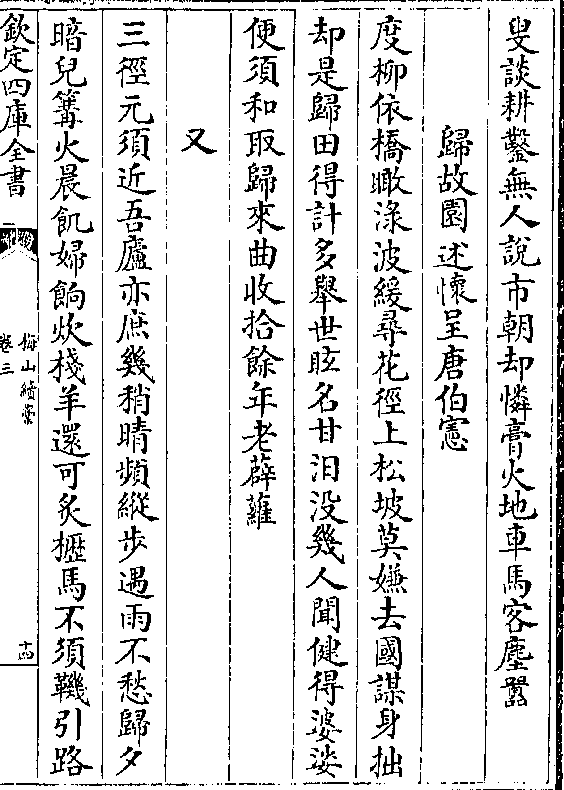 叟談耕鑿無人說市朝却憐膏火地車馬客塵囂
歸故園述懷呈唐伯憲
度柳依橋瞰渌波緩尋花徑上松坡莫嫌去國謀身拙
却是歸田得計多舉世眩名甘汨没幾人聞健得婆娑
便須和取歸來曲收拾餘年老薜蘿
又
三徑元須近吾廬亦庶幾稍晴頻縱步遇雨不愁歸夕
暗兒篝火晨飢婦餉炊棧羊還可炙櫪馬不須鞿引路
欽定四庫全書
梅山續藁
卷三
十四